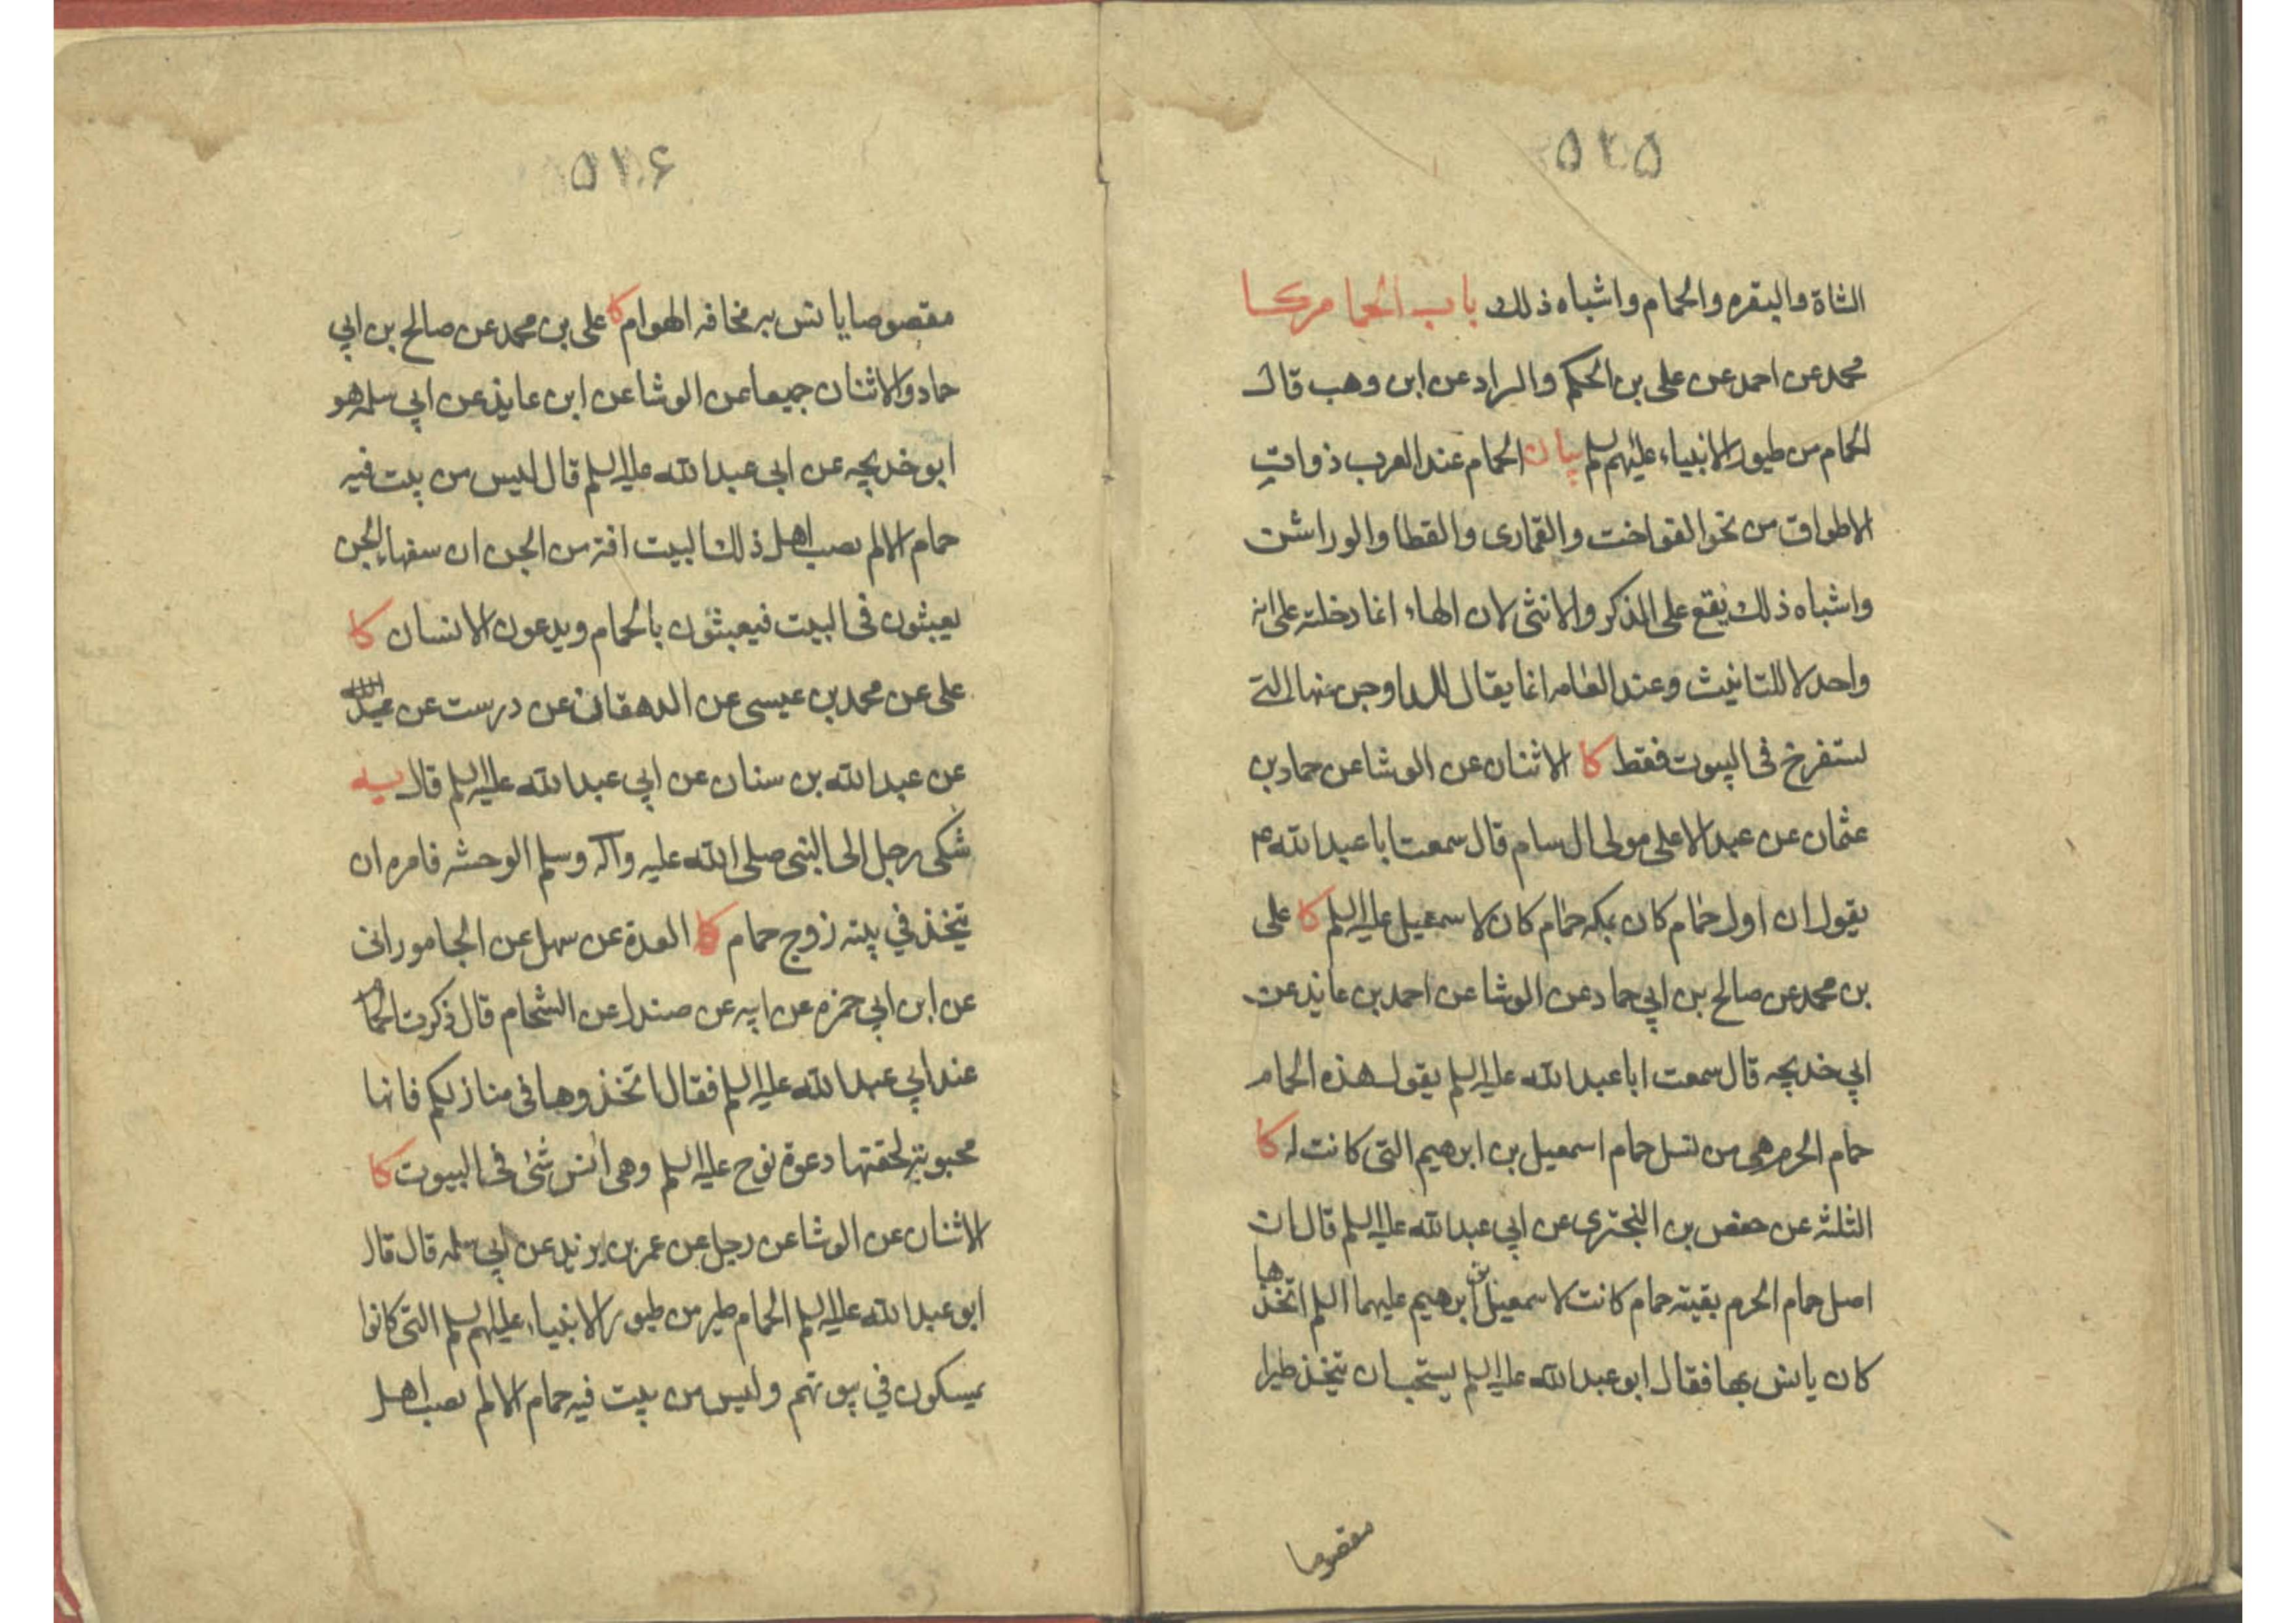 ۵۲۵
الشاة والبقره والحمام واشباه ذلك باب الحمام كا
محمد عن احمد عن علي بن الحكم والسراد عن ابن وهب قال
الحمام من طيور الانبياء عليهم السلم بيان الحمام عند العرب ذوات
الاطواق من نحو الفواخت والقماري والقطا والوراشن
واشباه ذلك يقع على الذكر والانثى لان الهاء انما دخلته على انه
واحد لا للتانيث وعند العامه انما يقال للدواجن منها التي
تستفرخ في البيوت فقط كا الاثنان عن الوشا عن حماد بن
عثمان عن عبد الاعلى مولى ال سام قال سمعت ابا عبد الله ع
يقول ان اول حمام كان بمكه حمام كان لاسمعيل عليه السلم كا علي
بن محمد عن صالح بن ابي حماد عن الوشا عن احمد بن عايذ عن
ابي خديجه قال سمعت ابا عبد الله عليه السلم يقول هذه الحمام
حمام الحرم هي من نسل حمام اسمعيل بن ابرهيم التي كانت له كا
الثلثه عن حفص بن البختري عن ابي عبد الله عليه السلم قال ان
اصل حمام الحرم بقيته حمام كانت لاسمعيل بن ابرهيم عليهما السلم اتخذها
كان يانس بها فقال ابو عبد الله عليه السلم يستحب ان يتخذ طيرا
مقصوصا
۵۲۶
مقصوصا يانس به مخافه الهوام كا علي بن محمد عن صالح بن ابي
حماد والاثنان جميعا عن الوشا عن ابن عايذ عن ابي سلمه هو
ابو خديجه عن ابي عبد الله عليه السلم قال ليس من بيت فيه
حمام الا لم يصب اهل ذلك البيت افة من الجن ان سفهاء الجن
يعبثون في البيت فيعبثون بالحمام ويدعون الانسان كا
علي عن محمد بن عيسى عن الدهقان عن درست عن عبد الله
عن عبد الله بن سنان عن ابي عبد الله عليه السلم قال يه
شكى رجل الى النبي صلى الله عليه وآله وسلم الوحشه فامره ان
يتخذ في بيته زوج حمام كا العدة عن سهل عن الجاموراني
عن ابن ابي حمزه عن ابيه عن صندل عن الشحام قال ذكرت الحمام
عند ابي عبد الله عليه السلم فقال اتخذوها في منازلكم فانها
محبوبة لحقتها دعوة نوح عليه السلم وهي انس شئ في البيوت كا
الاثنان عن الوشا عن رجل عن عمر بن يزيد عن ابي سلمه قال قال
ابو عبد الله عليه السلم الحمام طير من طيور الانبياء عليهم السلم التي كانوا
يمسكون في بيوتهم وليس من بيت فيه حمام الا لم يصب اهل